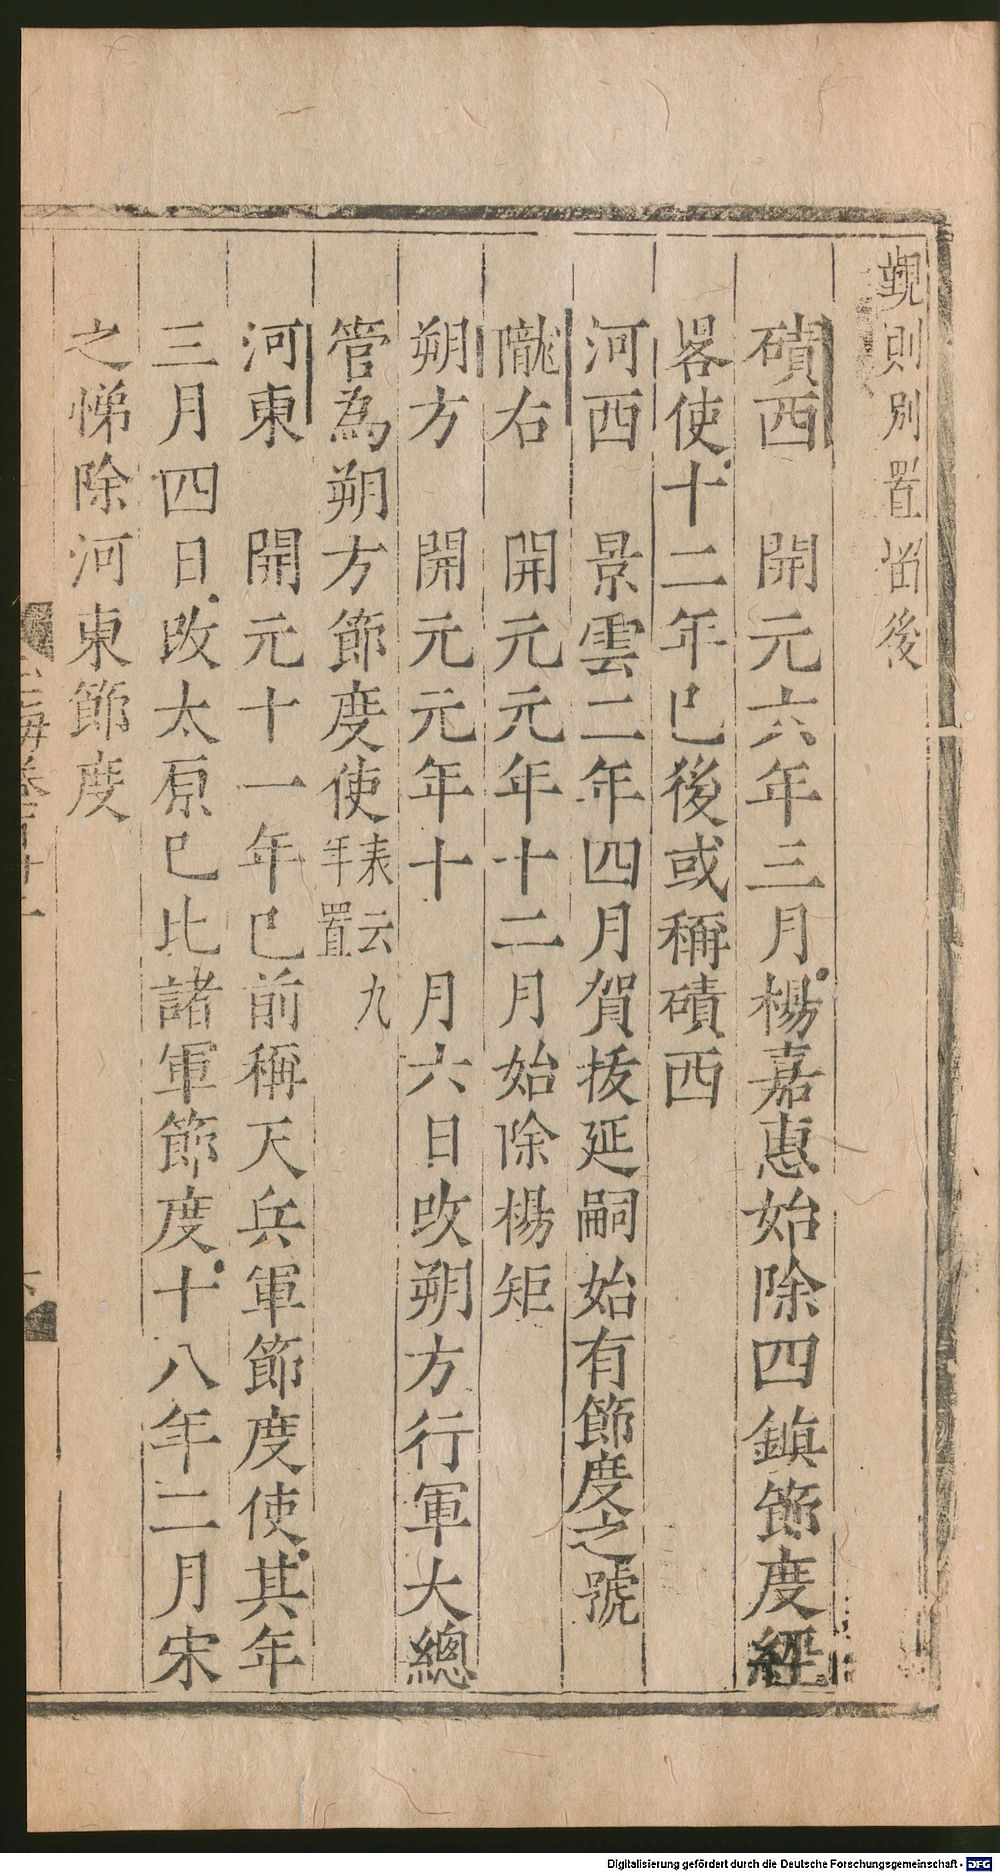 覲則別置畱後
磧西　開元六年三月楊嘉惠始除四鎮節度經
畧使十二年巳後或稱磧西
河西　景雲二年四月賀拔延嗣始有節度之號
隴右　開元元年十二月始除楊矩
朔方　開元元年十　月六日改朔方行軍大總
管為朔方節度使表云九年置
河東　開元十一年巳前稱天兵軍節度使其年
三月四日改太原巳比諸軍節度十八年二月宋
之悌除河東節度
Digitalisierung gefördert durch die Deutsche Forschungsgemeinschaft - DFG